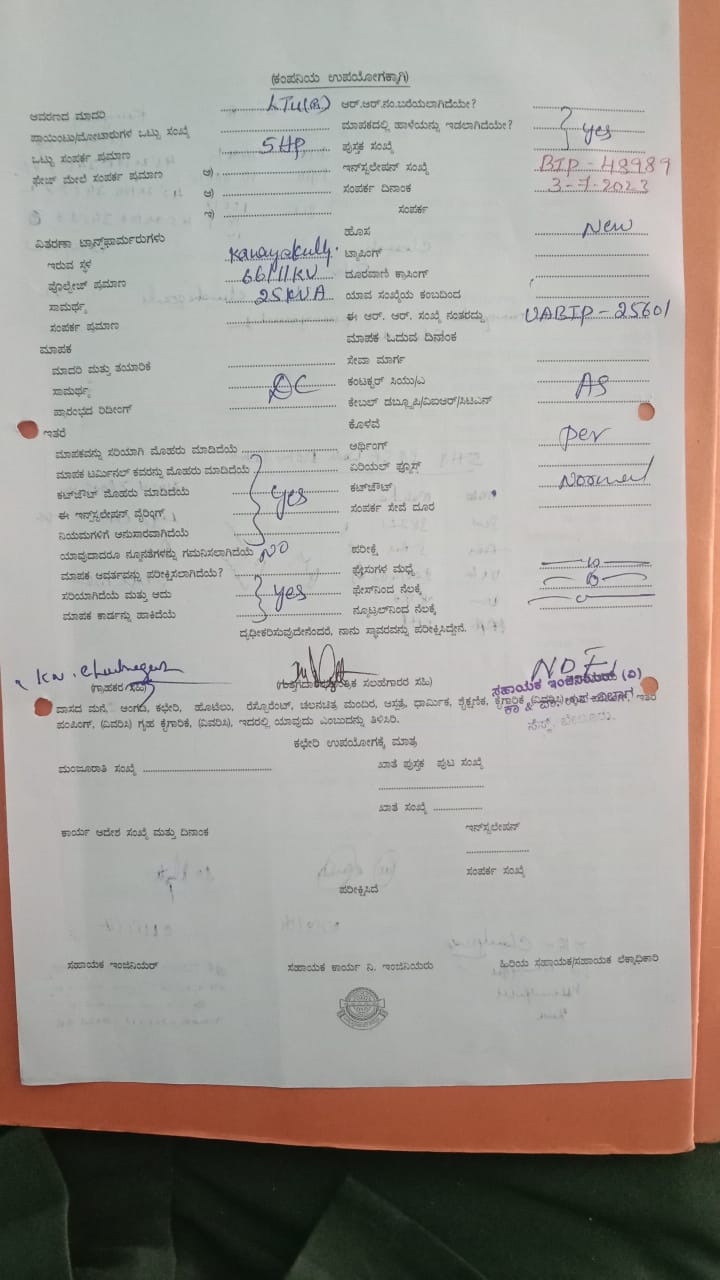 (ಕಂಪನಿಯ ಉಪಯೋಗಕ್ಕಾಗಿ)
ಆವರಣದ ಮಾದರಿ ಆರ್.ಆರ್.ನಂ.ಬರೆಯಲಾಗಿದೆಯೇ?
ಪಾಯಿಂಟು/ಮೋಟಾರುಗಳ ಒಟ್ಟು ಸಂಖ್ಯೆ ಮಾಪಕದಲ್ಲಿ ಹಾಳೆಯನ್ನು ಇಡಲಾಗಿದೆಯೇ? yes
ಒಟ್ಟು ಸಂಪರ್ಕ ಪ್ರಮಾಣ 5HP ಪುಸ್ತಕ ಸಂಖ್ಯೆ
ಫೇಜ್ ಮೇಲೆ ಸಂಪರ್ಕ ಪ್ರಮಾಣ ಅ) ಇನ್‌ಸ್ಟಲೇಷನ್ ಸಂಖ್ಯೆ BIP-48989
ಆ) ಸಂಪರ್ಕ ದಿನಾಂಕ 3-7-2023
ಇ) ಸಂಪರ್ಕ
ವಿತರಣಾ ಟ್ರಾನ್ಸ್‌ಫಾರ್ಮರುಗಳು ಹೊಸ New
ಇರುವ ಸ್ಥಳ ಟ್ಯಾಪಿಂಗ್
ವೋಲ್ಟೇಜ್ ಪ್ರಮಾಣ 66/11KV ದೂರವಾಣಿ ಕ್ರಾಸಿಂಗ್
ಸಾಮರ್ಥ್ಯ 25KVA ಯಾವ ಸಂಖ್ಯೆಯ ಕಂಬದಿಂದ
ಸಂಪರ್ಕ ಪ್ರಮಾಣ ಈ ಆರ್. ಆರ್. ಸಂಖ್ಯೆ ನಂತರದ್ದು UABIP-25601
ಮಾಪಕ ಮಾಪಕ ಓದುವ ದಿನಾಂಕ
ಮಾದರಿ ಮತ್ತು ತಯಾರಿಕೆ ಸೇವಾ ಮಾರ್ಗ
ಸಾಮರ್ಥ್ಯ DC ಕಂಟಕ್ಟರ್ ಸಿಯು/ಎ As
ಪ್ರಾರಂಭದ ರಿಡೀಂಗ್ ಕೇಬಲ್ ಡಬ್ಲ್ಯೂಪಿ/ವಿಐಆರ್/ಸಿಟಿಎಸ್
ಇತರೆ ಕೊಳವೆ
ಮಾಪಕವನ್ನು ಸರಿಯಾಗಿ ಮೊಹರು ಮಾಡಿದೆಯೆ ಆರ್ಥಿಂಗ್ per
ಮಾಪಕ ಟರ್ಮಿನಲ್ ಕವರನ್ನು ಮೊಹರು ಮಾಡಿದೆಯೆ ಏರಿಯಲ್ ಫ್ಯೂಸ್
ಕಟ್‌ಔಟ್ ಮೊಹರು ಮಾಡಿದೆಯೆ yes ಕಟ್‌ಔಟ್
ಈ ಇನ್‌ಸ್ಟಲೇಷನ್ ವೈರಿಂಗ್ ಸಂಪರ್ಕ ಸೇವೆ ದೂರ
ನಿಯಮಗಳಿಗೆ ಅನುಸಾರವಾಗಿದೆಯೆ
ಯಾವುದಾದರೂ ನ್ಯೂನತೆಗಳನ್ನು ಗಮನಿಸಲಾಗಿದೆಯೆ NO ಪರೀಕ್ಷೆ
ಮಾಪಕ ಆವರ್ತವನ್ನು ಪರೀಕ್ಷಿಸಲಾಗಿದೆಯೆ? ಫ್ಯೂಸುಗಳ ಮಧ್ಯೆ
ಸರಿಯಾಗಿದೆಯೆ ಮತ್ತು ಅದು yes ಫೇಸ್‌ನಿಂದ ನೆಲಕ್ಕೆ
ಮಾಪಕ ಕಾರ್ಡನ್ನು ಹಾಕಿದೆಯೆ ನ್ಯೂಟ್ರಲ್‌ನಿಂದ ನೆಲಕ್ಕೆ
ದೃಢೀಕರಿಸುವುದೇನೆಂದರೆ, ನಾನು ಸ್ಥಾವರವನ್ನು ಪರೀಕ್ಷಿಸಿದ್ದೇನೆ.
(ಗ್ರಾಹಕರ ಸಹಿ) ಸಲಹಗಾರರ ಸಹಿ) ಸಹಾಯಕ ಇಂಜಿನಿಯರ್ (ವಿ)
ವಾಸದ ಮನೆ, ಅಂಗಡಿ, ಕಛೇರಿ, ಹೊಟೆಲು, ರೆಸ್ಟೋರೆಂಟ್, ಚಲನಚಿತ್ರ ಮಂದಿರ, ಆಸ್ಪತ್ರೆ, ಧಾರ್ಮಿಕ, ಶೈಕ್ಷಣಿಕ, ಕೈಗಾರಿಕೆ (ವಿವರಿಸಿ) ಇತರೆ
ಪಂಪಿಂಗ್, (ವಿವರಿಸಿ) ಗೃಹ ಕೈಗಾರಿಕೆ, (ವಿವರಿಸಿ), ಇದರಲ್ಲಿ ಯಾವುದು ಎಂಬುದನ್ನು ತಿಳಿಸಿರಿ.
ಕಛೇರಿ ಉಪಯೋಗಕ್ಕೆ ಮಾತ್ರ
ಮಂಜೂರಾತಿ ಸಂಖ್ಯೆ ಖಾತೆ ಪುಸ್ತಕ ಪುಟ ಸಂಖ್ಯೆ
ಖಾತೆ ಸಂಖ್ಯೆ
ಕಾರ್ಯ ಆದೇಶ ಸಂಖ್ಯೆ ಮತ್ತು ದಿನಾಂಕ ಇನ್‌ಸ್ಟಲೇಷನ್
ಸಂಪರ್ಕ ಸಂಖ್ಯೆ
ಪರೀಕ್ಷಿಸಿದೆ
ಸಹಾಯಕ ಇಂಜಿನಿಯರ್ ಸಹಾಯಕ ಕಾರ್ಯ ನಿ. ಇಂಜಿನಿಯರು ಹಿರಿಯ ಸಹಾಯಕ/ಸಹಾಯಕ ಲೆಕ್ಕಾಧಿಕಾರಿ